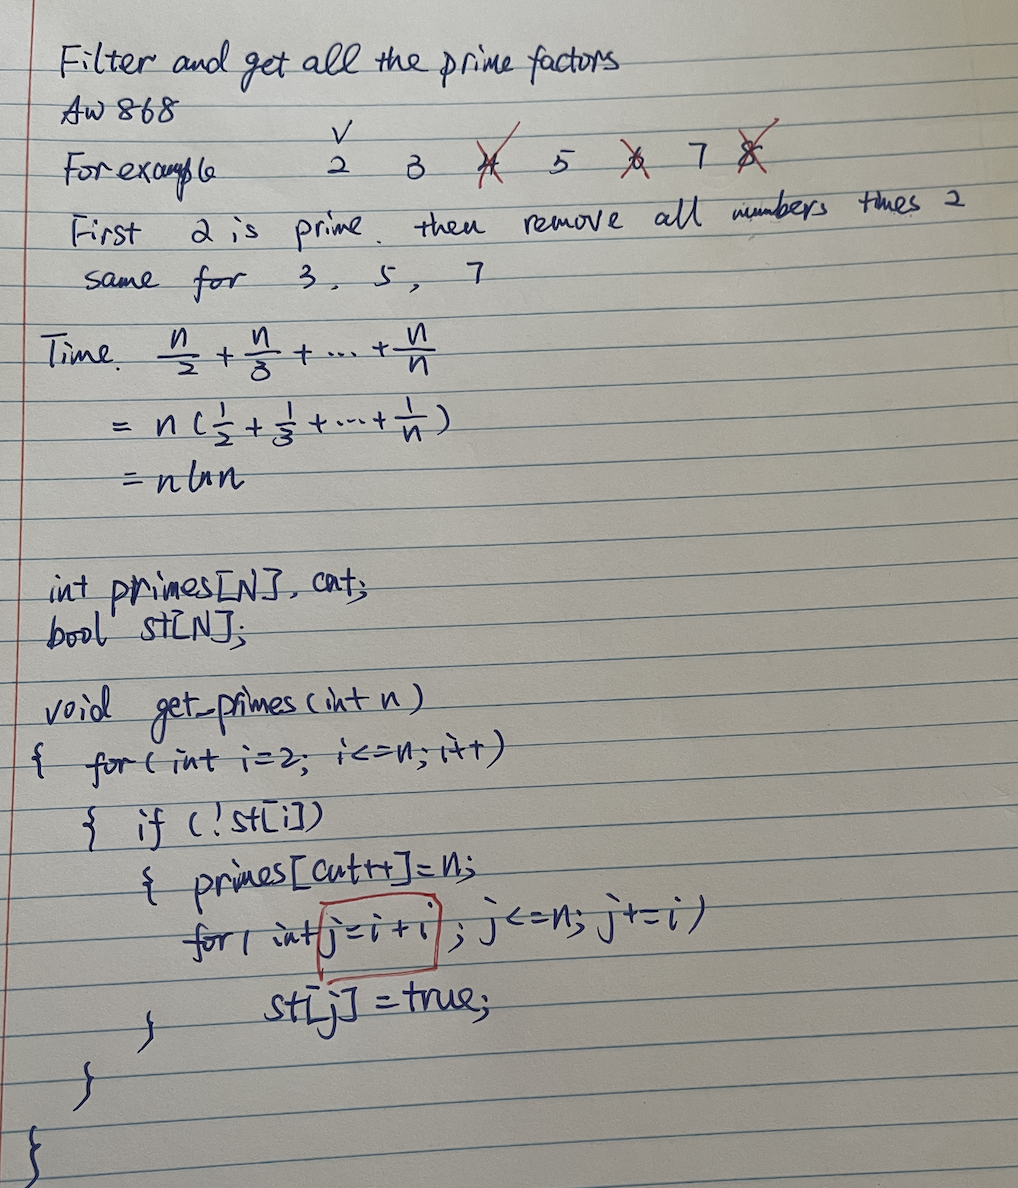 Filter and get all the prime factors
AW 868
For example 2 3 4 5 6 7 8
First 2 is prime. then remove all numbers times 2
same for 3, 5, 7
Time. n/2 + n/3 + ... + n/n
= n (1/2 + 1/3 + ... + 1/n)
= n ln n
int primes[N], cnt;
bool st[N];
void get_primes (int n)
{ for ( int i=2; i<=n; i++)
{ if (!st[i])
{ primes[cnt++]=n;
for ( int j=i+i ; j<=n; j+=i)
st[j] = true;
}
}
}